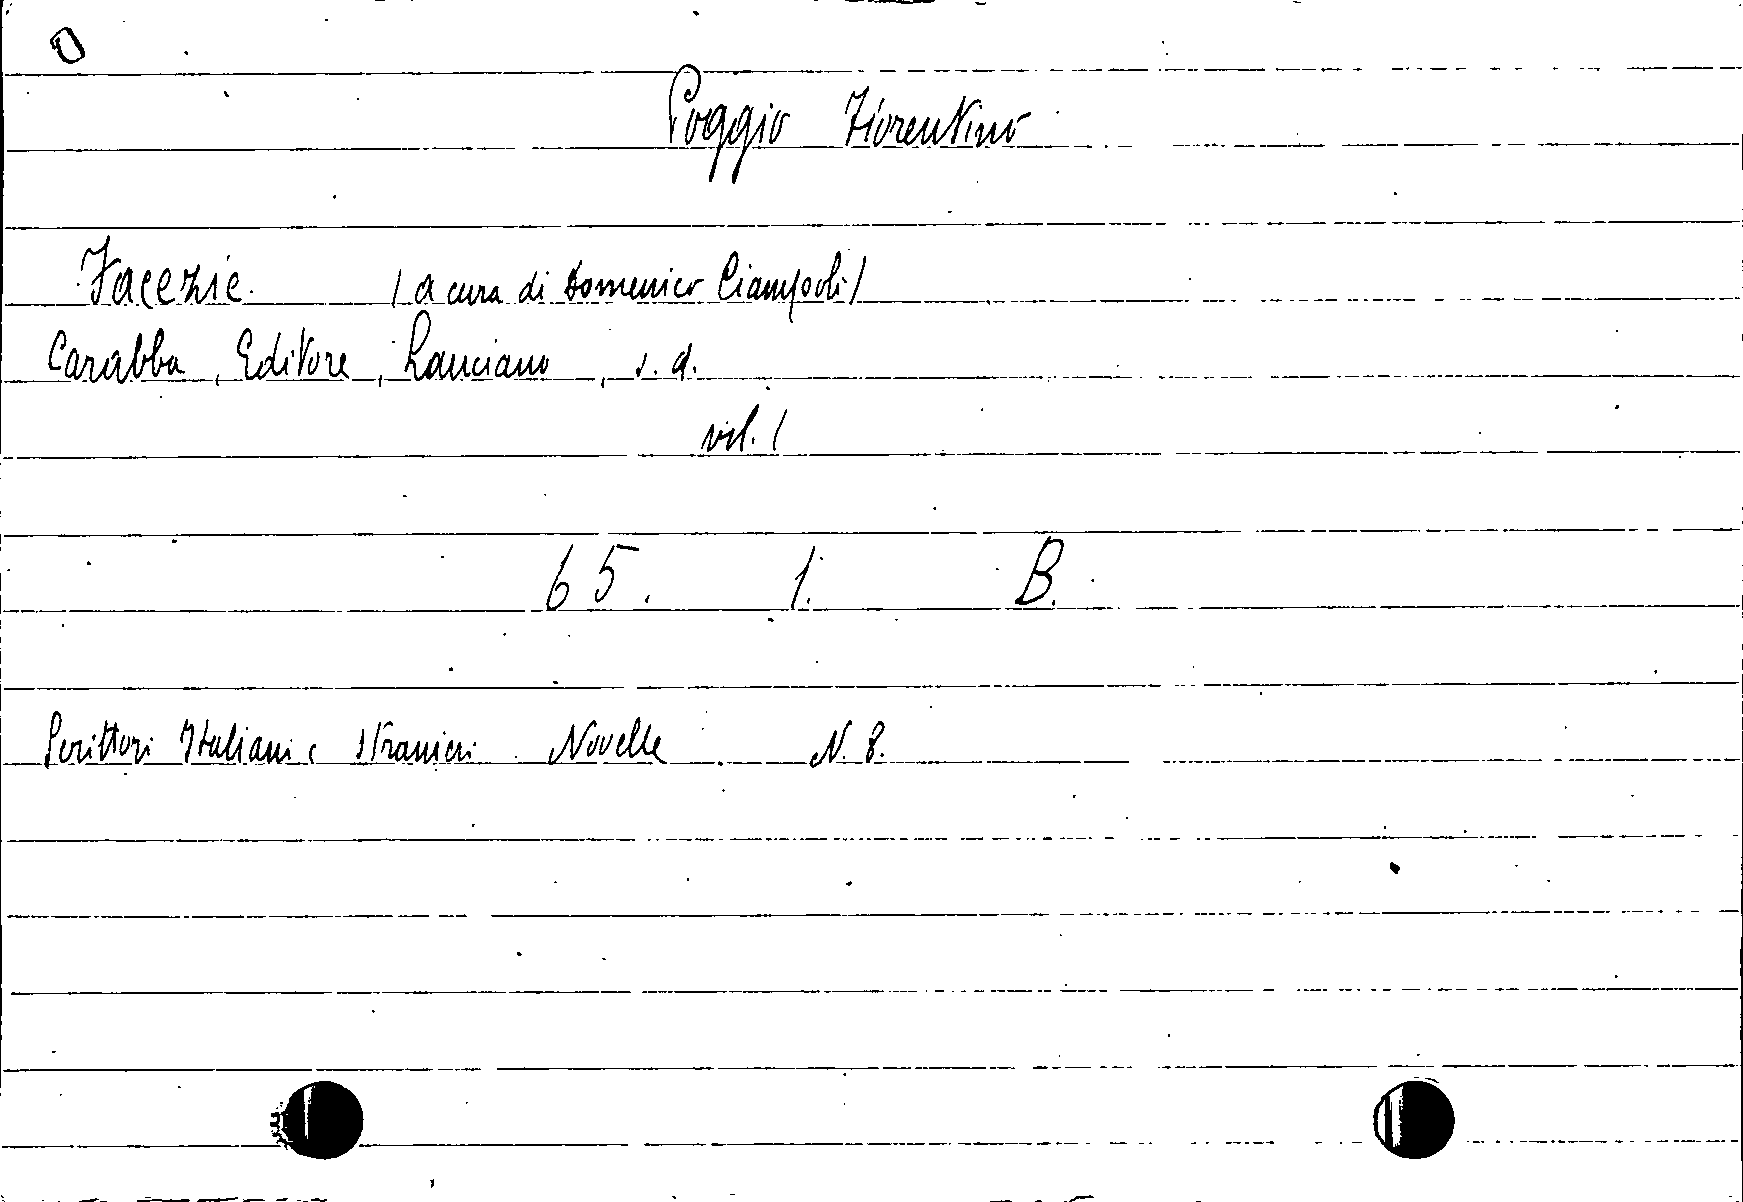 Poggio Fiorentino
Facezie. / a cura di Domenico Ciampoli /
Carabba, Editore, Lanciano, s. d.
vol. 1
65. 1. B.
Scrittori Italiani e stranieri Novelle N. 8.